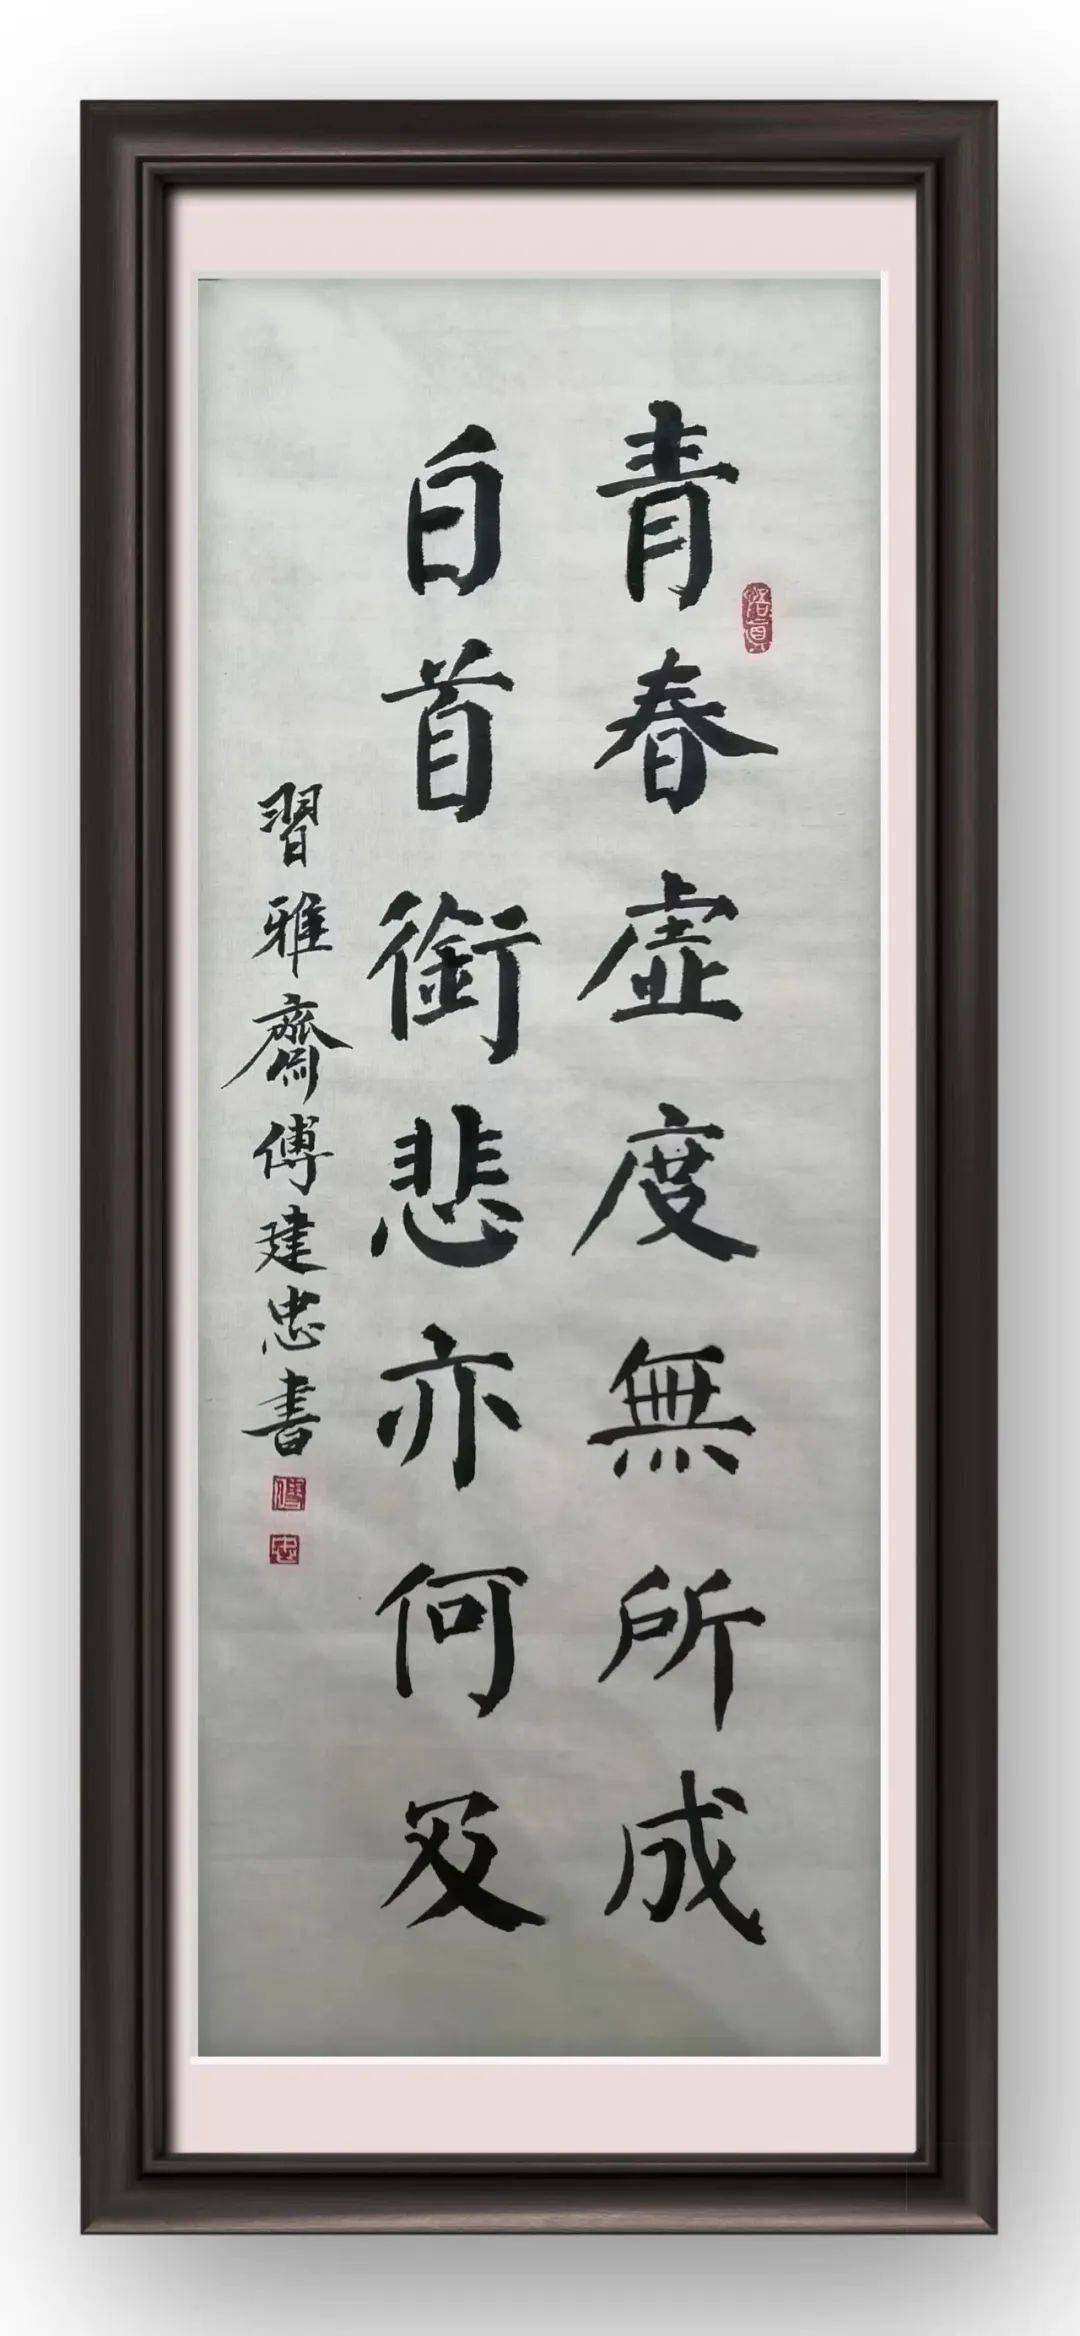 青春虛度無所成
白首銜悲亦何及
習雅齋傅建忠書